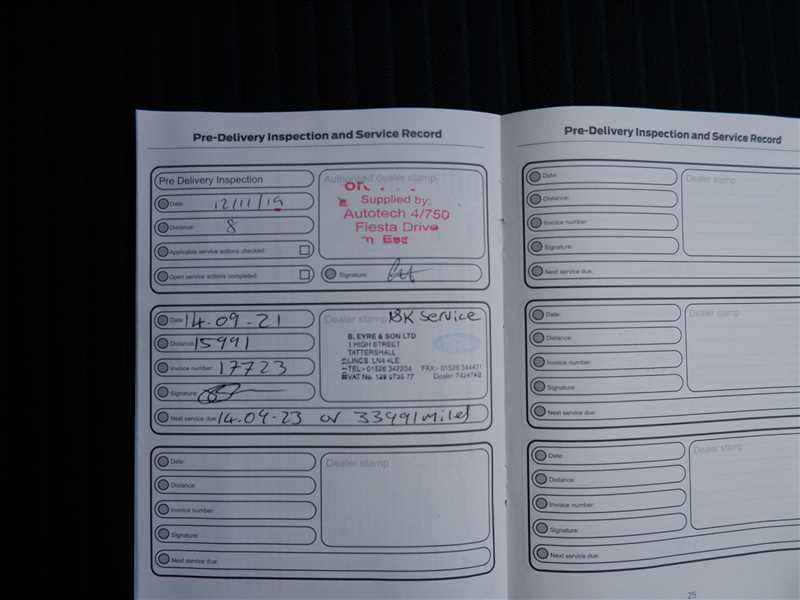 Pre-Delivery Inspection and Service Record
Pre Delivery Inspection
Date: 12/11/19
Distance: 8
Applicable service actions checked:
Open service actions completed:
Authorised dealer stamp
Supplied by:
Autotech 4/750
Fiesta Drive
Signature:
Date: 14-09-21
Distance: 15991
Invoice number: 17723
Signature:
Next service due: 14.09-23 or 33991 miles
Dealer stamp 18K Service
B. EYRE & SON LTD
1 HIGH STREET
TATTERSHALL
LINCS LN4 4LE
TEL:- 01526 342304 FAX:- 01526 344431
VAT No.
Dealer
Date:
Distance:
Invoice number:
Signature:
Next service due:
Dealer stamp
Pre-Delivery Inspection and Service Record
Date:
Distance:
Invoice number:
Signature:
Next service due:
Dealer stamp
Date:
Distance:
Invoice number:
Signature:
Next service due:
Dealer stamp
Date:
Distance:
Invoice number:
Signature:
Next service due:
Dealer stamp
25